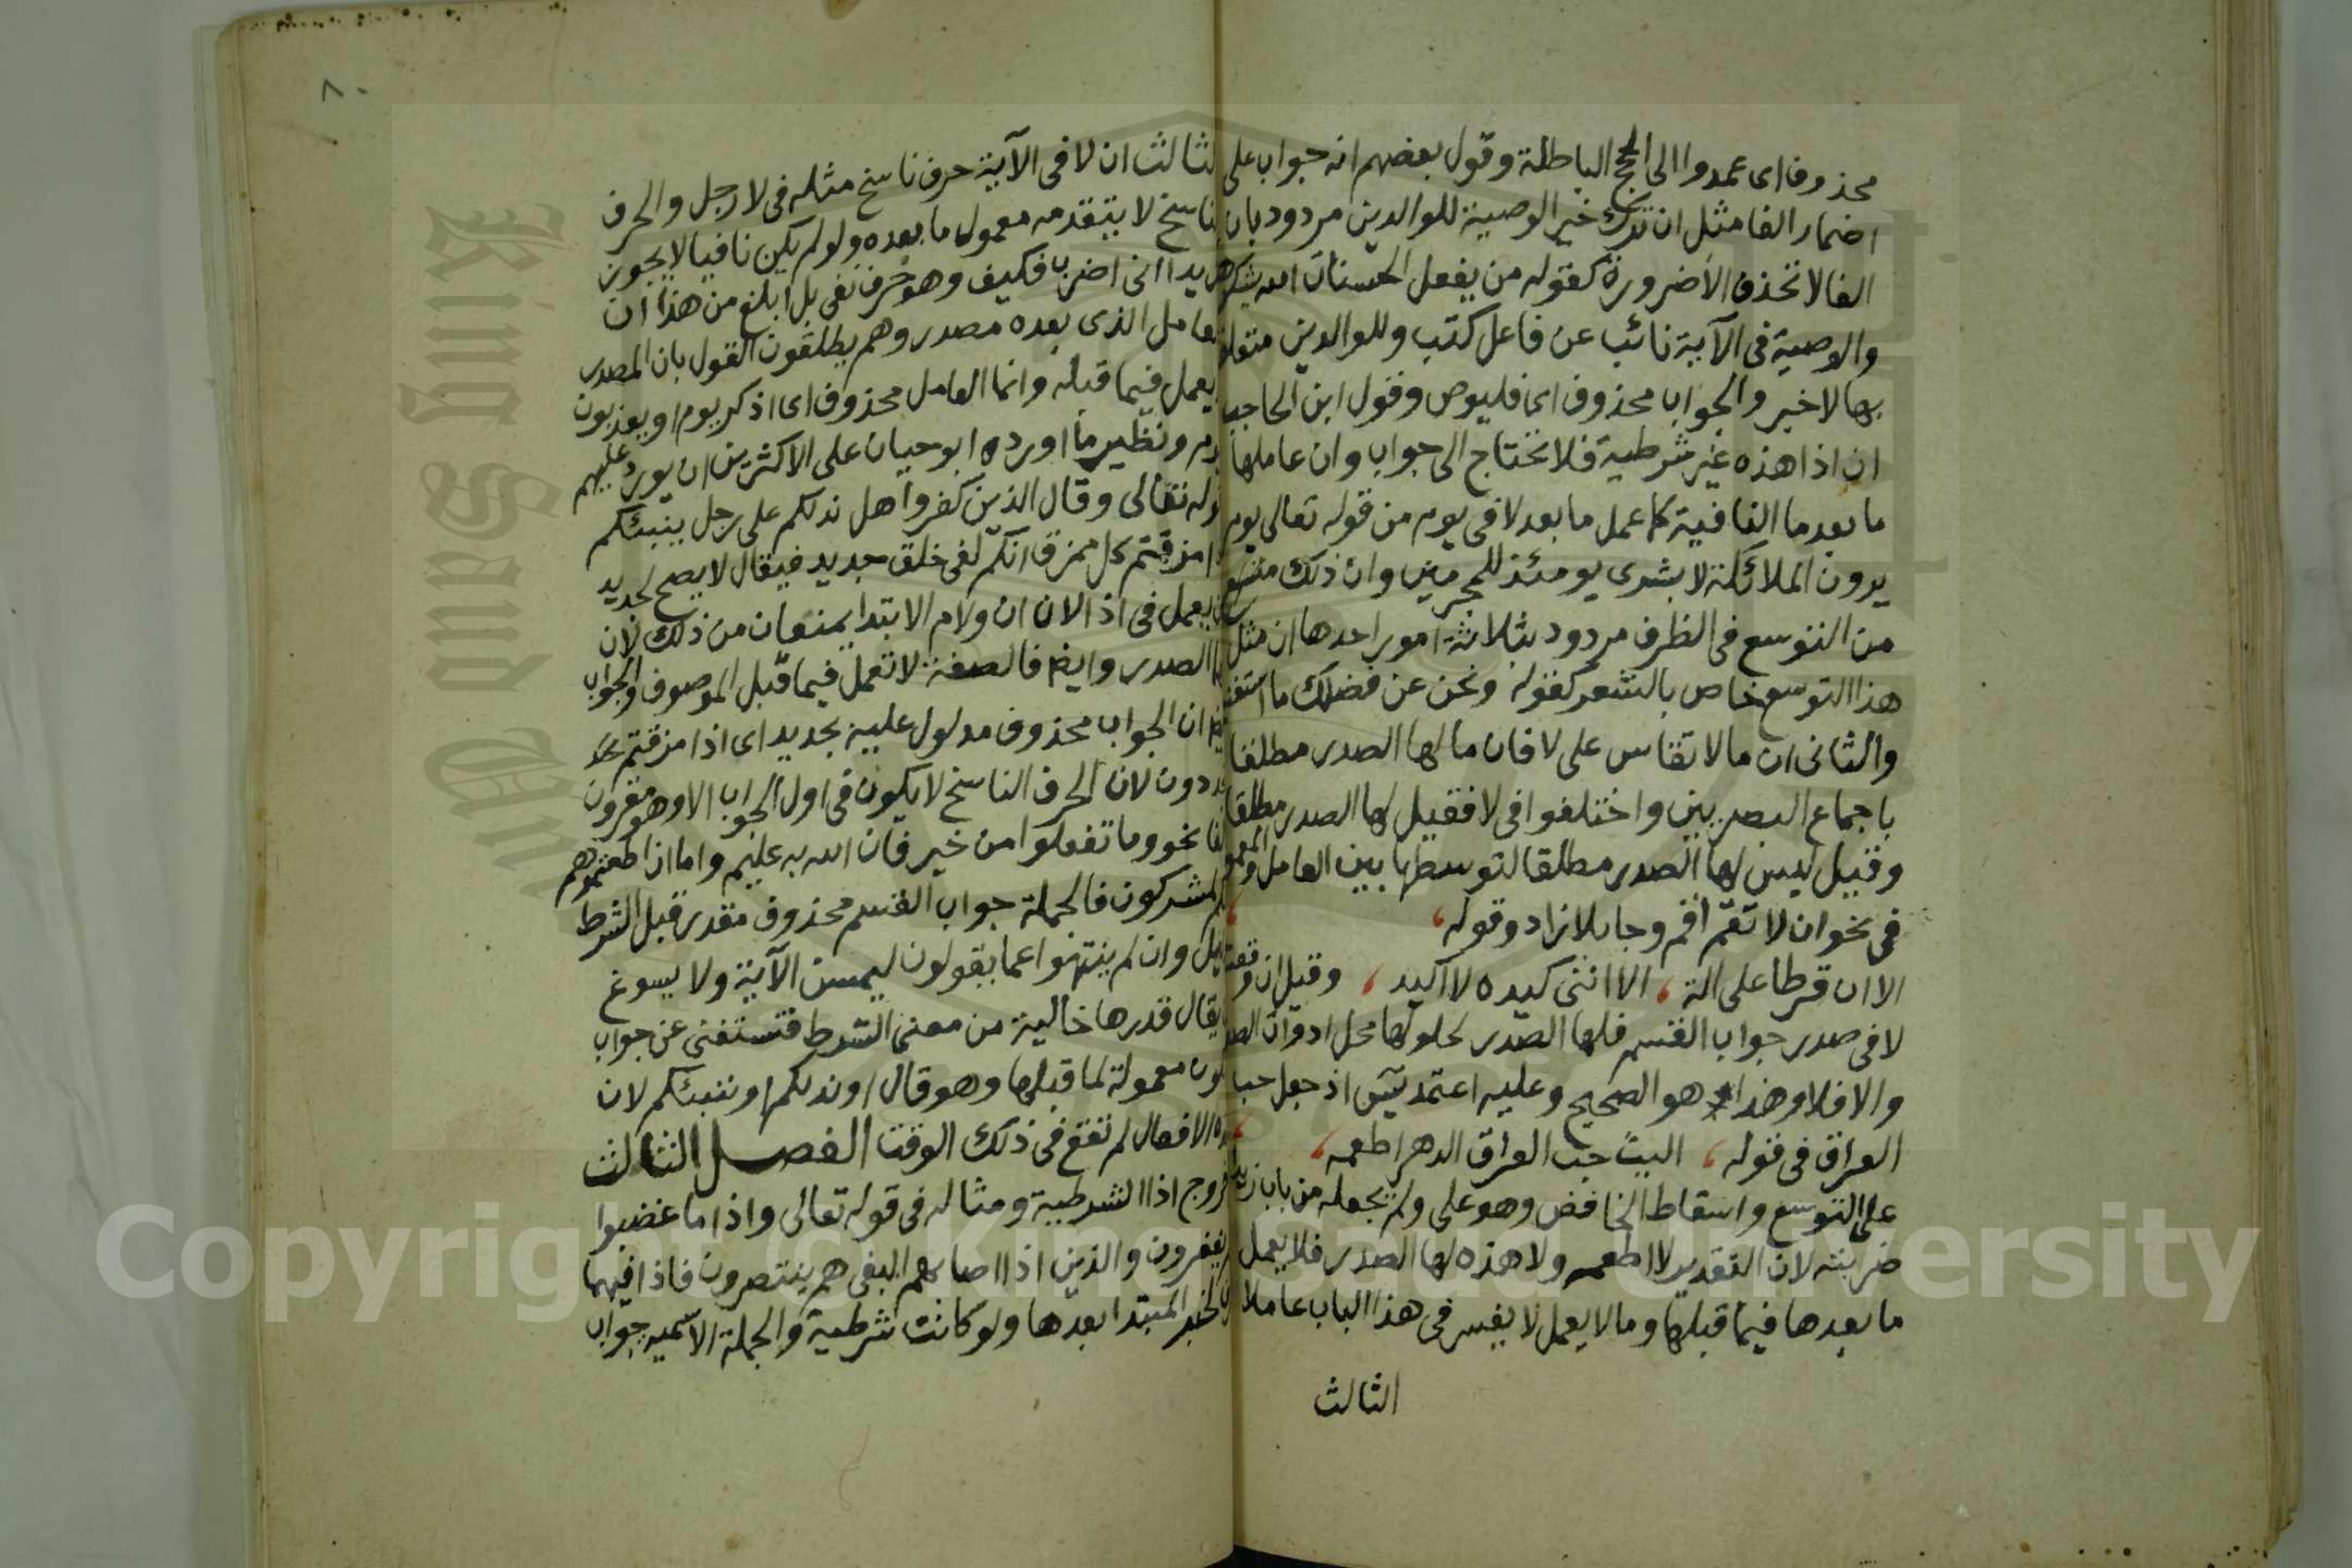 محذوف اى عمدوا الى الحجج الباطلة وقول بعضهم انه جواب على
اضمار الفا مثل ان ترك خير الوصية للوالدين مردود بان
الفا لا تحذف الا ضرورة كقوله من يفعل الحسنات الله يشكرها
والوصية فى الآية نائب عن فاعل كتب وللوالدين متعلق
بها لا خبر والجواب محذوف اى فليوص وقول ابن الحاجب
ان اذا هذه غير شرطية فلا تحتاج الى جواب وان عاملها
ما بعد ما النافية كما عمل ما بعد لا فى يوم من قوله تعالى يوم
يرون الملائكة لا بشرى يومئذ للمجرمين وان ذلك من
من التوسع فى الظرف مردود بثلاثة امور احدها ان مثل
هذا التوسع خاص بالشعر كقوله ونحن عن فضلك ما استغنينا
والثانى ان ما لا تقاس على لا فان ما لها الصدر مطلقا
باجماع البصريين واختلفوا فى لا فقيل لها الصدر مطلقا
وقيل ليس لها الصدر مطلقا لتوسطها بين العامل والمعمول
فى نحو ان لا تقم اقم وجا بلا زاد وقوله
الا ان قرطا على الة ، الا اننى كيده لا اكيد ، وقيل ان وقعت
لا فى صدر جواب القسم فلها الصدر لحلولها محل ادوات الصدر
والا فلا وهذا هو الصحيح وعليه اعتمد س اذ جعل حب
العراق فى قوله ، اليت حب العراق الدهر اطعمه ،
على التوسع واسقاط الخافض وهو على ولم يجعله من باب زيدا
ضربته لان التقدير لا اطعمه ولا هذه لها الصدر فلا يعمل
ما بعدها فيما قبلها وما لا يعمل لا يفسر فى هذا الباب عاملا
الثالث
٨٠
الثالث ان لا فى الآية حرف ناسخ مثله فى لا رجل والحرف
الناسخ لا يتقدمه معمول ما بعده ولو لم يكن نافيا لا يجوز
زيدا انى اضرب فكيف وهو حرف نفى بل ابلغ من هذا ان
العامل الذى بعده مصدر وهم يطلقون القول بان المصدر
يعمل فيما قبله وانما العامل محذوف اى اذكر يوم او يعذبون
يوم ونظير ما اورده ابو حيان على الاكثرين ان يورد عليهم
قوله تعالى وقال الذين كفروا هل ندلكم على رجل ينبئكم
اذا مزقتم كل ممزق انكم لفى خلق جديد فيقال لا يصح لجديد
ان يعمل فى اذا لان ان ولام الابتدا يمنعان من ذلك لان
لها الصدر وايضا فالصفة لا تعمل فيما قبل الموصوف والجواب
ايضا ان الجواب محذوف مدلول عليه بجديد اى اذا مزقتم
تجددون لان الحرف الناسخ لا يكون فى اول الجواب الا وهو مقرون
بالفا نحو وما تفعلوا من خير فان الله به عليم واما ان اطعتموهم
انكم لمشركون فالجملة جواب القسم محذوف مقدر قبل الشرط
بدليل وان لم ينتهوا عما يقولون ليمسن الآية ولا يسوغ
ان يقال قدرها خالية من معنى الشرط فتستغنى عن جواب
وتكون معمولة لما قبلها وهو قال او ندلكم او ننبئكم لان
هذه الافعال لم تقع فى ذلك الوقت الفصل الثالث
خروج اذا الشرطية ومثاله فى قوله تعالى واذا ما غضبوا
هم يغفرون والذين اذا اصابهم البغى هم ينتصرون فاذا فيهما
ظرف لخبر المبتدا بعدها ولو كانت شرطية والجملة الاسميه جواب
King Saud University
Copyright © King Saud University